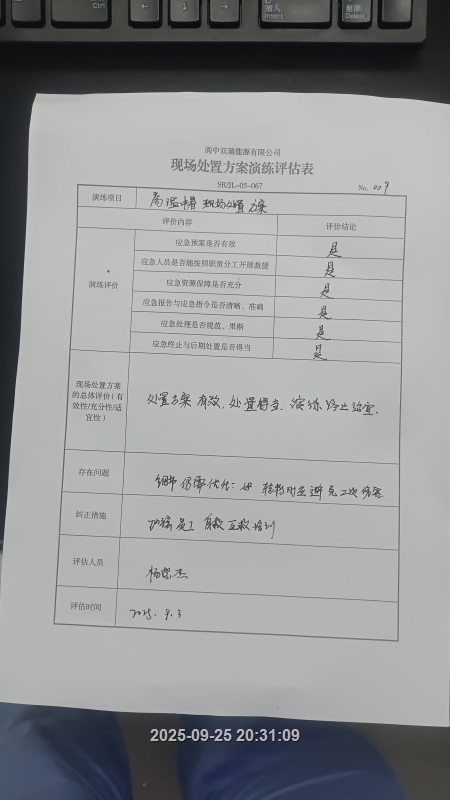 Ctrl
插入
Insert
删除
Delete
阆中双瑞能源有限公司
现场处置方案演练评估表
SR/JL-05-067
No. 009
演练项目
高温中暑现场处置方案
评价内容
评价结论
演练评价
应急预案是否有效
是
应急人员是否能按照职责分工开展救援
是
应急资源保障是否充分
是
应急报告与应急指令是否清晰、准确
是
应急处理是否规范、果断
是
应急终止与后期处置是否得当
是
现场处置方案
的总体评价(有
效性/充分性/适
宜性)
处置方案有效,处置得当,演练终止适宜.
存在问题
细节仍需优化:如 转移时应避免二次伤害
纠正措施
加强员工自救互救培训
评估人员
杨 杰
评估时间
2025. 9.3
2025-09-25 20:31:09